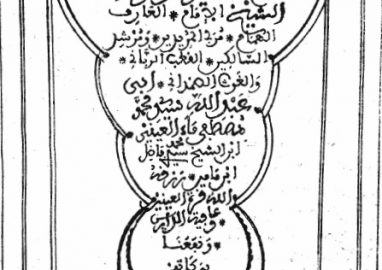 الشيخ الإمام * العارف
الهمام * مربي المريدين * ومرشد
السالكين * القطب الرباني *
والغوث الصمداني * أبي
عبد الله سيدي محمد
مصطفى ماء العينين
ابن الشيخ سيدي محمد فاضل
ابن مامين * رزقه
الله قرة العينين *
وعافية الدارين
ونفعنا
ببركاته